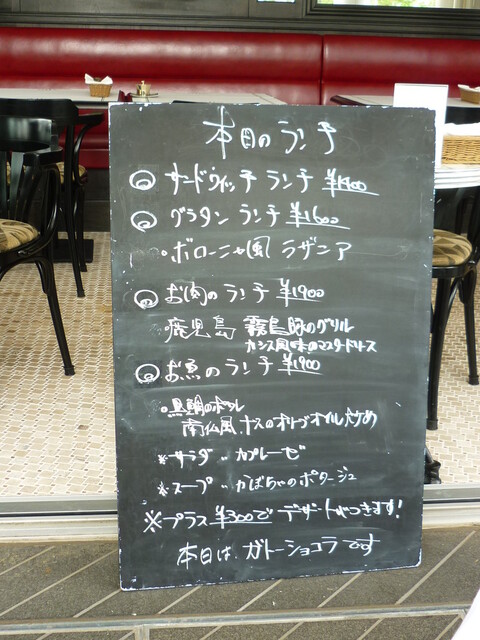 本日のランチ
◎ サードウィッチ ランチ ¥1400
◎ グラタン ランチ ¥1600
・ボローニャ風 ラザニア
◎ お肉のランチ ¥1900
鹿児島 霧島豚のグリル
カシス風味のマスタードソース
◎ お魚のランチ ¥1900
・黒鯛のポワレ
南仏風 ナスのオリーブオイル炒め
※サラダ‥カプレーゼ
※スープ‥かぼちゃのポタージュ
※プラス ¥300で デザートがつきます!
本日は ガトーショコラです